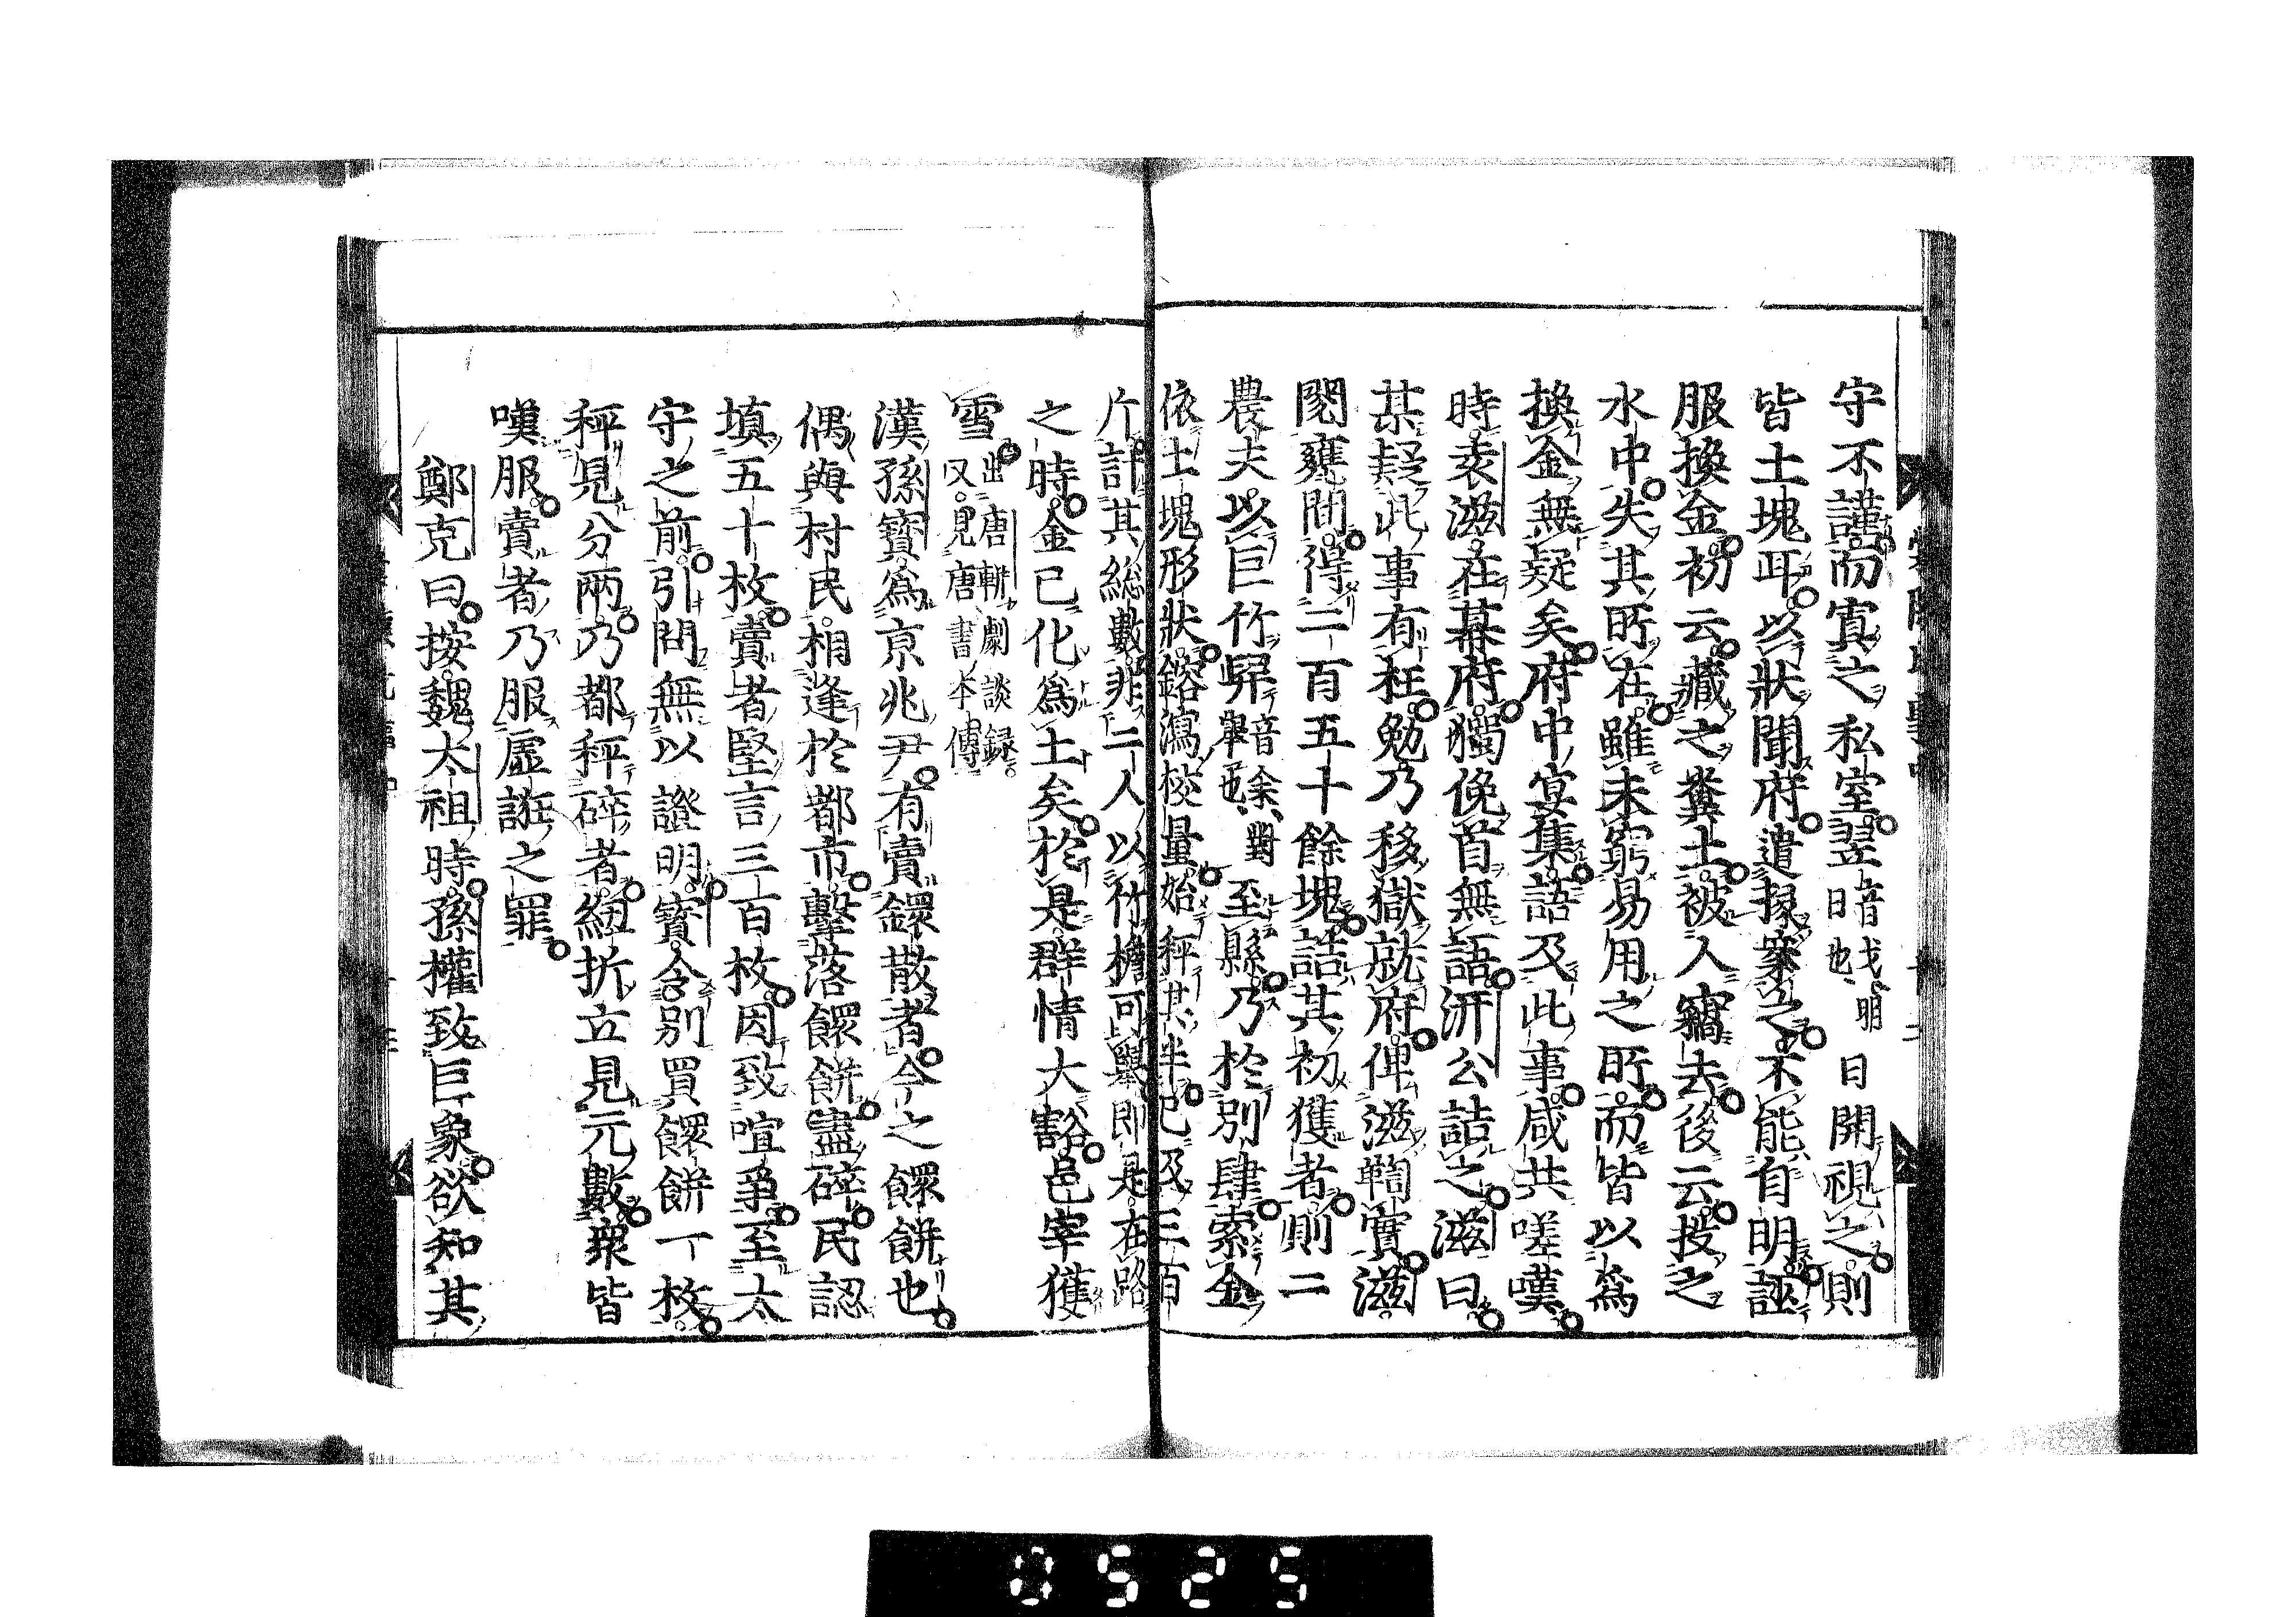 守不謹而寘之私室翌音弋明日也日開視之則
皆土塊耳以狀聞府遣掾案之不能自明誣
服換金初云藏之糞土被人竊去後云投之
水中失其所在雖未窮易用之所而皆以爲
換金無疑矣府中宴集語及此事咸共嗟嘆
時袁滋在幕府獨俛首無語汧公詰之滋曰
某疑此事有枉勉乃移獄就府俾滋鞫實滋
閱甕間得二百五十餘塊詰其初獲者則二
農夫以巨竹舁音余對舉也至縣乃於別肆索金
依土塊形狀鎔瀉校量始秤其半已及三百
斤計其総數非二人以竹檐可舉即是在路
之時金已化爲土矣於是群情大豁邑宰獲
雪出唐軿劇談録又見唐書本傳
漢孫寶爲京兆尹有賣鐶散者今之餲餅也
偶與村民相逢於都市擊落餲餅盡碎民認
填五十枚賣者堅言三百枚因致喧爭至太
守之前引問無以證明寶令別買餲餅一枚
秤見分兩乃都秤碎者紐折立見元數衆皆
嘆服賣者乃服虛誑之罪
鄭克曰按魏太祖時孫權致巨象欲知其
0525